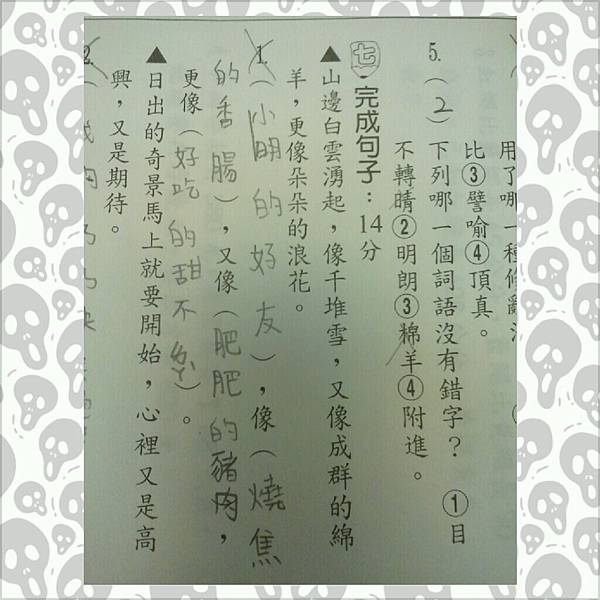 用了哪一種修辭
比③譬喻④頂真。
5.(2)下列哪一個詞語沒有錯字?①目
不轉晴②明朗③棉羊④附進。
七、完成句子:14分
▲山邊白雲湧起,像千堆雪,又像成群的綿
羊,更像朵朵的浪花。
1.(小明的好友),像(燒焦
的香腸),又像(肥肥的豬肉,
更像(好吃的甜不)。
▲日出的奇景馬上就要開始,心裡又是高
興,又是期待。
2.(